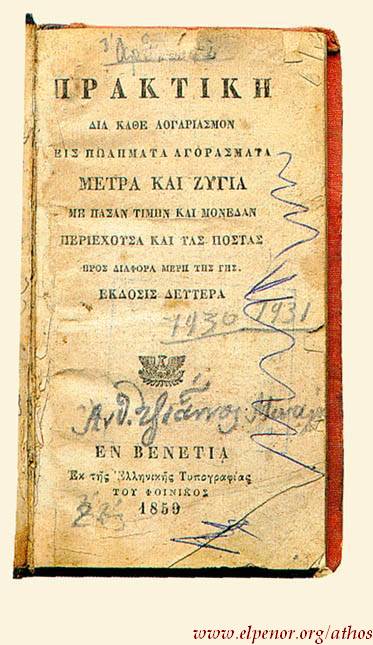 ΠΡΑΚΤΙΚΗ
ΔΙΑ ΚΑΘΕ ΛΟΓΑΡΙΑΣΜΟΝ
ΕΙΣ ΠΩΛΗΜΑΤΑ ΑΓΟΡΑΣΜΑΤΑ
ΜΕΤΡΑ ΚΑΙ ΖΥΓΙΑ
ΜΕ ΠΑΣΑΝ ΤΙΜΗΝ ΚΑΙ ΜΟΝΕΔΑΝ
ΠΕΡΙΕΧΟΥΣΑ ΚΑΙ ΤΑΣ ΠΟΣΤΑΣ
ΠΡΟΣ ΔΙΑΦΟΡΑ ΜΕΡΗ ΤΗΣ ΓΗΣ.
ΕΚΔΟΣΙΣ ΔΕΥΤΕΡΑ
1930 1931
ΕΝ ΒΕΝΕΤΙΑ
Εκ τῆς Ἑλληνικῆς Τυπογραφίας
ΤΟΥ ΦΟΙΝΙΚΟΣ
1859
www.elpenor.org/athos